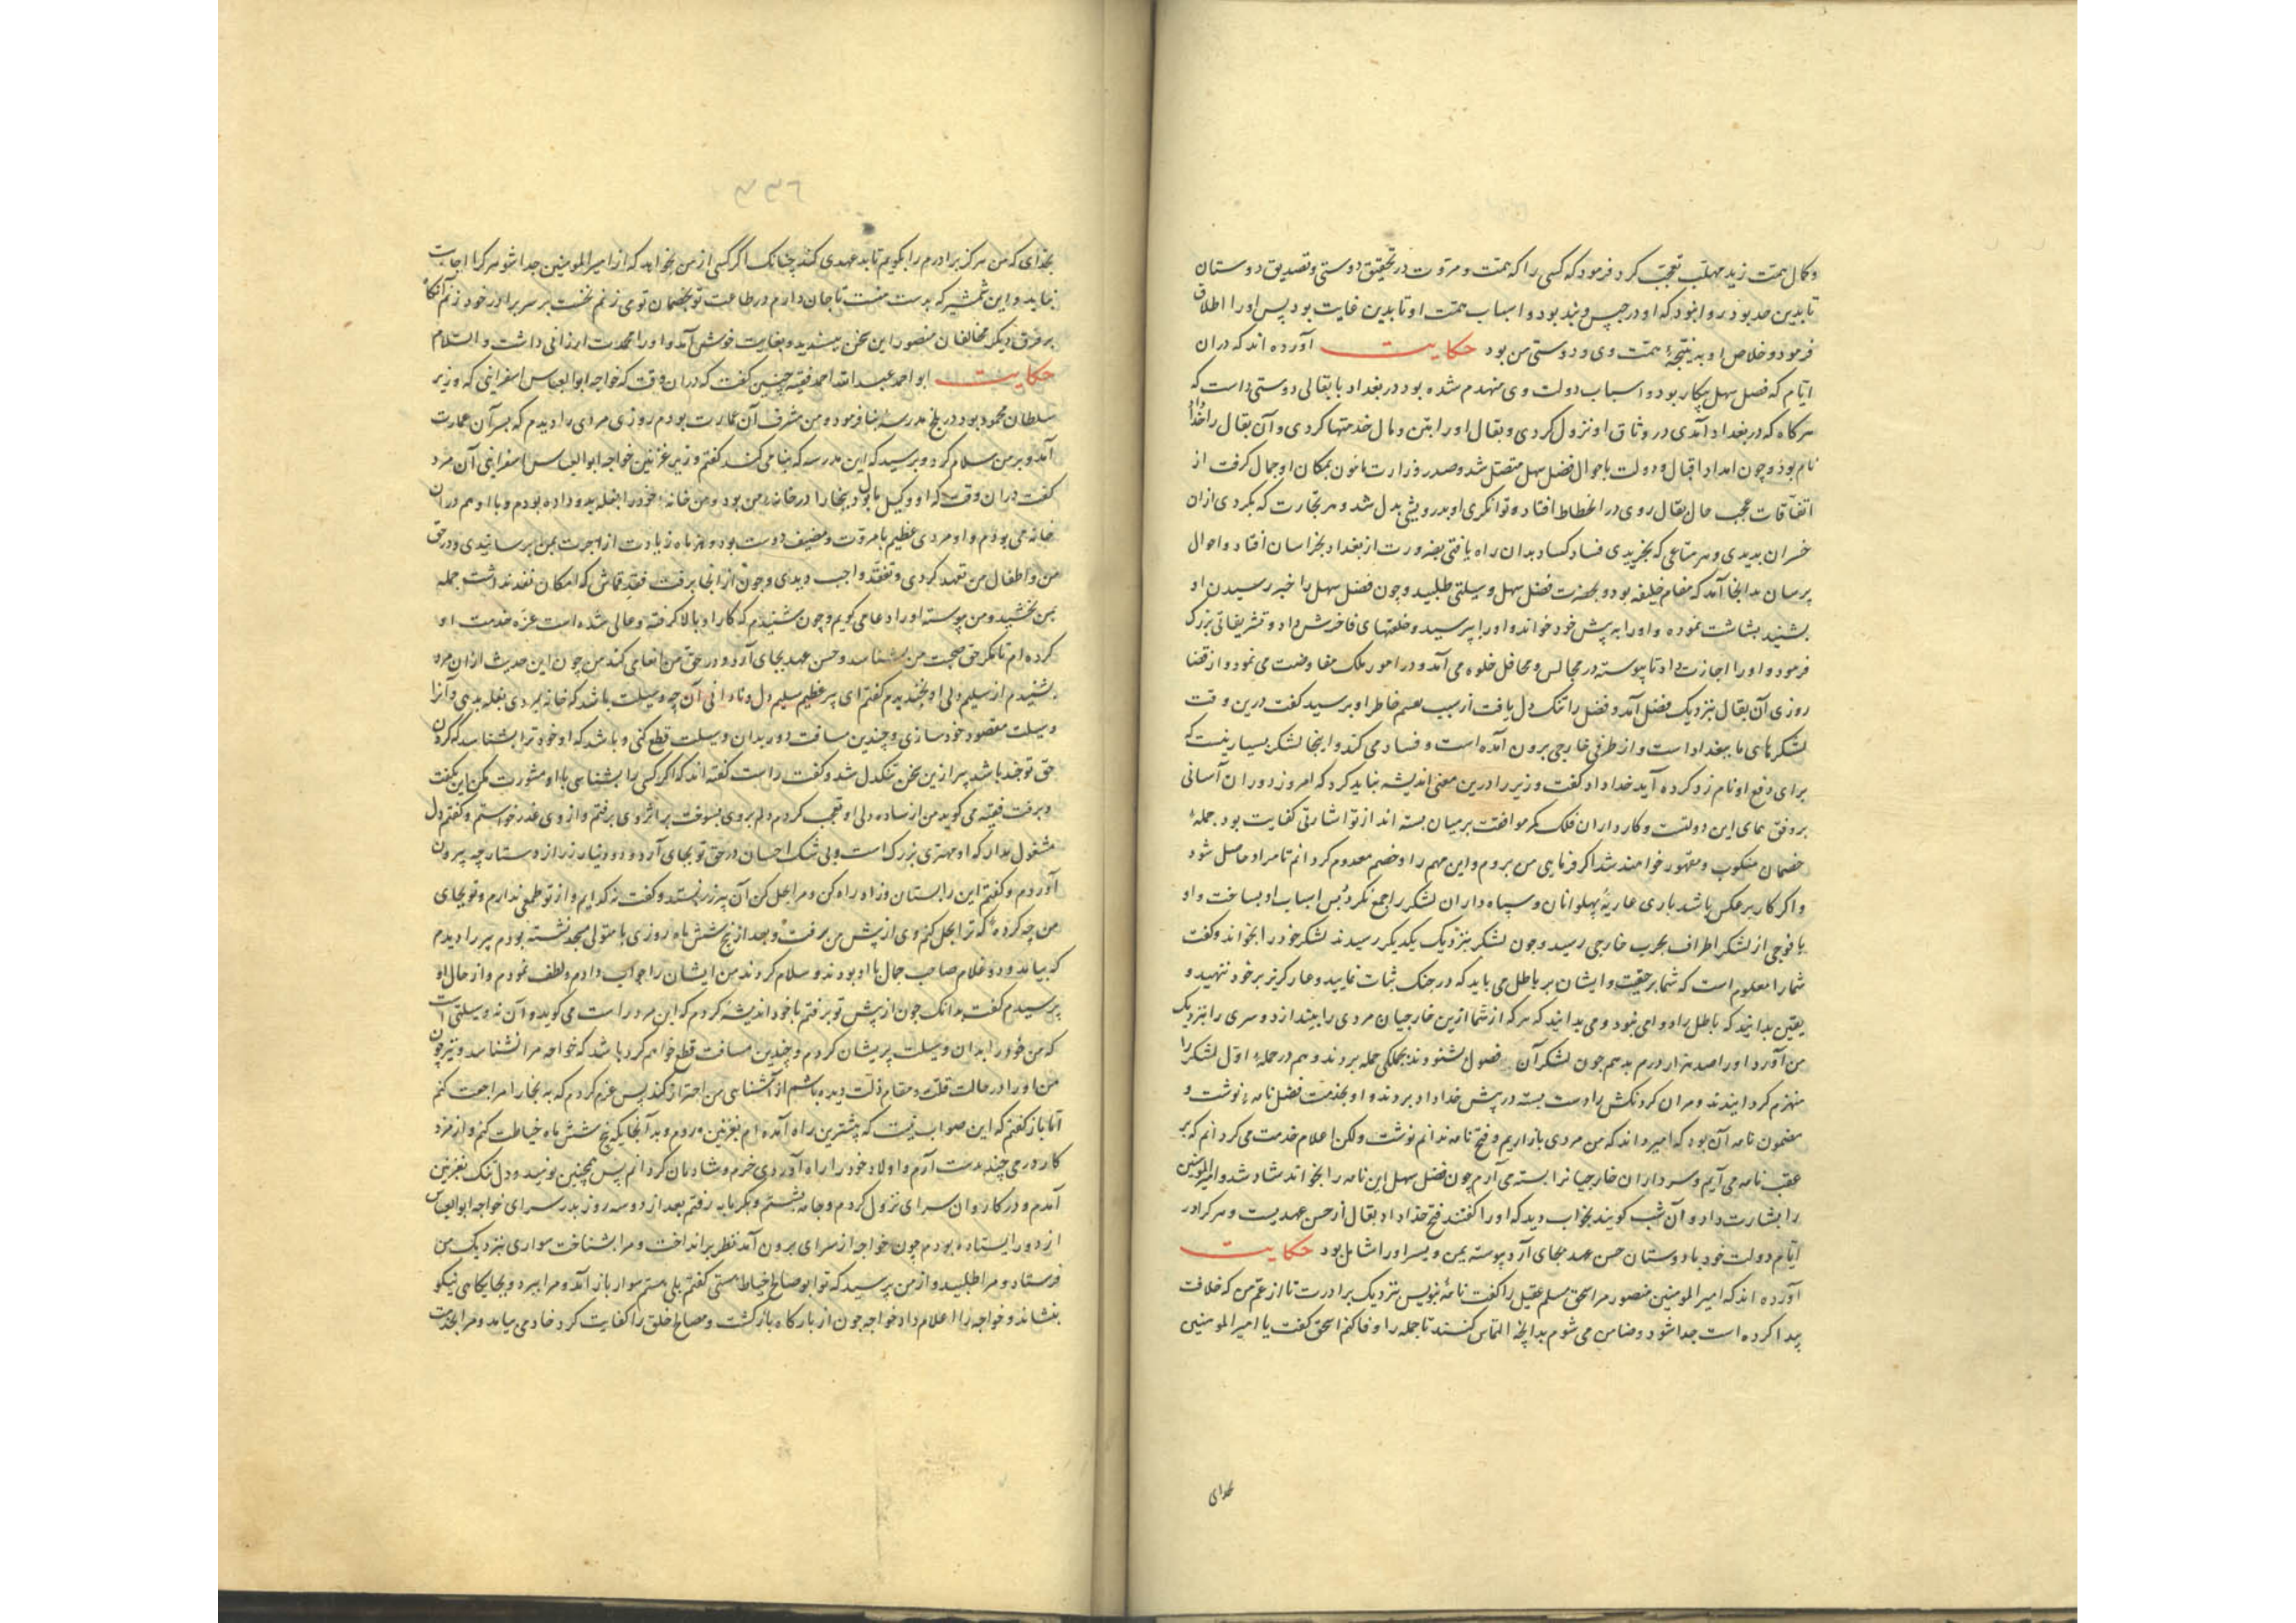 وکمال همت زید مهلب تعجب کرد فرمود که کسی را که همت و مروت در تحقیق دوستی و تصدیق دوستان
تا بدین حد بود روا نبود که او در حبس و بند بود و اسباب همت او تا بدین غایت بود پس او را اطلاق
فرمود و خلاص او به نتیجهٔ همت وی و دوستی من بود حکایت آورده اند که دران
ایام که فضل سهل بیکار بود و اسباب دولت وی منهدم شده بود در بغداد با بقالی دوستی داشت که
هرگاه که در بغداد آمدی در وثاق او نزول کردی و بقال او را بتن و مال خدمتها کردی و آن بقال را خداداد
نام بود و چون امداد اقبال و دولت باحوال فضل سهل متصل شد و صدر وزارت مامون بمکان او جمال گرفت از
اتفاقات عجب حال بقال روی در انحطاط افتاد و توانکری او بدرویشی بدل شد و هر تجارت که بکردی ازان
خسران بدیدی و هر متاعی که بخریدی فساد کساد بدان راه یافتی بضرورت از بغداد بخراسان افتاد و احوال
پرسان بدانجا آمد که مقام خلیفه بود و بحضرت فضل سهل وسیلتی طلبید و چون فضل سهل را خبر رسیدن او
بشنید بشاشت نموده و او را به پیش خود خواند و او را بپرسید و خلعتهای فاخرش داد و تشریفاتی بزرک
فرمود و او را اجازت داد تا پیوسته در مجالس و محافل خلوه می آمد و در امور ملک مفاوضت می نمود و از قضا
روزی آن بقال بنزدیک فضل آمد و فضل را تنک دل یافت از سبب هم خاطر او پرسید گفت درین وقت
لشکرهای ما ببغداد است و از طرفی خارجی برون آمده است و فساد می کند و اینجا لشکر بسیار نیست که
برای دفع او نامزد کرده آید خداداد گفت وزیر را درین معنی اندیشه نباید کرد که امروز دوران آسمانی
بر وفق همای این دولتست و کارداران فلک کمر موافقت بر میان بسته اند از تو اشارتی کفایت بود جملهٔ
خصمان منکوب و مقهور خواهند شد اگر فرمایی من بروم و این مهم را و خصم معدوم گردانم تا مراد حاصل شود
و اکر کار برعکس باشد باری عاریهٔ پهلوانان و سپاه داران لشکر را جمع نکرد پس اسباب او بساخت و او
با فوجی از لشکر اطراف بحرب خارجی رسید و چون لشکر بنزدیک یکدیگر رسیدند لشکر خود را بخواند و گفت
شما را معلوم است که شما بر حقیت و ایشان بر باطل می باید که در جنک ثبات نمایید و عار گریز بر خود ننهید و
یقین بدانید که باطل را دوامی نبود و می بدانید که هر که از شما ازین خارجیان مردی را بیندازد و سری را بنزدیک
من آورد او را صد هزار درم بدهم چون لشکر آن فصول بشنودند بجملگی حمله بردند و هم در حملهٔ اول لشکر را
منهزم گردانیدند و سران گردنکش را دست بسته در پیش خداداد بردند و او بخدمت فضل نامهٔ نوشت و
مضمون نامه آن بود که امیر داند که من مردی بازاریم و فتح نامه ندانم نوشت ولکن اعلام خدمت می گردانم که بر
عقب نامه می آیم و سرداران خارجیانرا بسته می آرم چون فضل سهل این نامه را بخواند شاد شد و امیرالمومنین
را بشارت داد و آن شب گویند بخواب دید که او را گفتند فتح خداداد بقال از حسن عهدیست و هر کرا در
ایام دولت خود با دوستان حسن عهد بجای آرد پیوسته یمن و یسر او را شامل بود حکایت
آورده اند که امیرالمومنین منصور مر اسحق مسلم عقیل را گفت نامهٔ بنویس بنزدیک برادرت تا از عم من که خلافت
پیدا کرده است جدا شود و ضامن می شوم بدانچه التماس کنند تا جمله را وفا کنم اسحق گفت یا امیرالمومنین
بخدای
۴۳۶
بخدای که من هرگز برادرم را بگویم تا بد عهدی کند چنانک اگر کسی از من بخواهد که از امیرالمومنین جدا شو هرکرا اجابت
نماید و این شمشیر که بدست منست تا جان دارم در طاعت تو بخصمان توی زنم نخست بر سر برادر خود زنم آنکاه
بر فرق دیگر مخالفان منصور این سخن بشنید و بغایت خوشش آمد و او را محمدت ارزانی داشت والسلام
حکایت ابو احمد عبدالله احمد فقیه چنین گفت که دران وقت که خواجه ابوالعباس اسفراینی که وزیر
سلطان محمود بود در بلخ مدرسهٔ بنا فرمود و من مشرف آن عمارت بودم روزی مردی را دیدم که بسر آن عمارت
آمد و بر من سلام کرد و پرسید که این مدرسه که بنا می کند گفتم وزیر غزنین خواجه ابوالعباس اسفراینی آن مرد
گفت دران وقت که او وکیل بابول بود بخارا در خانهٔ من بود و من خانهٔ خود را بغله بدو داده بودم و با او هم دران
خانه می بودم و او مردی عظیم با مروت و مضیف دوست بود و هر ماه زیادت از اجرت بمن برسانیدی و در حق
من و اطفال من تعهد کردی و تفقد واجب دیدی و چون از آنجا برفت فقد قماش که امکان نفد نداشت جمله
بمن بخشید و من پیوسته او را دعا می گویم و چون شنیدم که کار او بالا گرفته و عالی شده است عزم خدمت او
کرده ام تا مگر حق صحبت من بشناسد و حسن عهد بجای آرد و در حق من انعامی کند من چون این حدیث ازان مرد
بشنیدم از سلیم دلی او بخندیدم گفتم ای پیر عظیم سلیم دل و نادانی آن چه وسیلت باشد که خانه بمردی بغله بدهی و آنرا
وسیلت مقصود خود سازی و چندین مسافت دور بدان وسیلت قطع کنی و باشد که او خود ترا بشناسد که گردن
حق تو خود باشد پیر ازین سخن تنکدل شد و گفت راست گفته اند که اگر کسی را بشناسی با او مشورت مکن این بگفت
و برفت فقیه می گوید من از ساده دلی او تعجب کردم و دلم بر وی بسوخت بر اثر وی برفتم و از وی عذر خواستم و گفتم دل
مشغول مدار که او مهتری بزرگ است و بی شک احسان در حق تو بجای آرد و دو دینار زر از دستارچه بیرون
آوردم و گفتم این را بستان و زاد راه کن و مرا بحل کن آن پیر زر نستد و گفت نه گدایم و از تو طمعی ندارم و تو بجای
من چه کردهٔ که ترا بحل کنم وی از پیش من برفت و بعد از پنج شش ماه روزی با متولی مسجد نشسته بودم پیر را دیدم
که بیامد و دو غلام صاحب جمال با او بودند و سلام کردند من ایشان را جواب دادم و لطف نمودم و از حال او
پرسیدم گفت بدانک چون از پیش تو برفتم با خود اندیشه کردم که این مرد راست می گوید و آن نه وسیلتی است
که من خود را بدان وسیلت پریشان کردم و چندین مسافت قطع خواهم کرد باشد که خواجه مرا نشناسد و نیز چون
من او را در حالت قلت و مقام ذلت دیده باشم از آشنایی من احتراز کند پس عزم کردم که به بخارا مراجعت کنم
اما باز گفتم که این صواب نیست که بیشترین راه آمده ام بغزنین روم و بدانجا یکه پنج شش ماه خیاطت کنم و از مزد
کار درمی چند بدست آرم و اولاد خود را راه آوردی خرم و شادمان گردانم پس همچنین نومید و دل تنک بغزنین
آمدم و در کاروان سرای نزول کردم و جامه بشستم و بگرمابه رفتم بعد از دو سه روز بدر سرای خواجه ابوالعباس
از دور ایستاده بودم چون خواجه از سرای برون آمد نظر بر انداخت و مرا بشناخت سواری بنزدیک من
فرستاد و مرا طلبید و از من پرسید که تو ابو صالح خیاط هستی گفتم بلی هستم سوار باز آمد و مرا ببرد و بجایگاهی نیکو
بنشاند و خواجه را اعلام داد خواجه چون از بارگاه بازگشت و مصالح خلق را کفایت کرد خادمی بیامد و مرا بخدمت